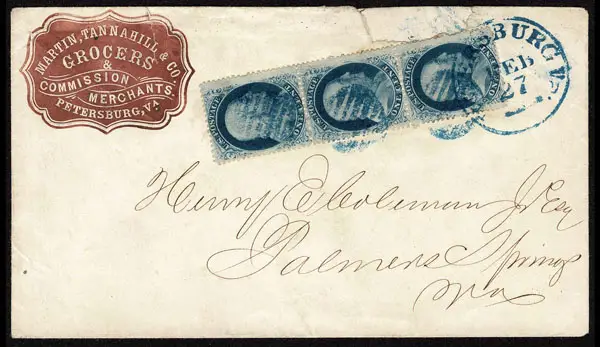 MARTIN, TANNAHILL & CO.
GROCERS
&
COMMISSION
MERCHANTS.
PETERSBURG, VA
U.S. POSTAGE
ONE CENT
U.S. POSTAGE
ONE CENT
U.S. POSTAGE
ONE CENT
ERSBURG Va.
FEB
27
Henry E Coleman Jr Esq
Palmers Springs
Va